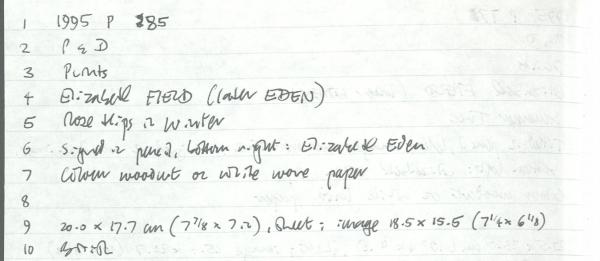 1 1995 P 285
2 P & D
3 Prints
4 Elizabeth FIELD (later EDEN)
5 Rose Hips in Winter
6 Signed in pencil, bottom right: Elizabeth Eden
7 Colour woodcut on white wove paper
8
9 20.0 x 17.7 cm (7 7/8 x 7 in), sheet; image 18.5 x 15.5 (7 1/4 x 6 1/8)
10 British